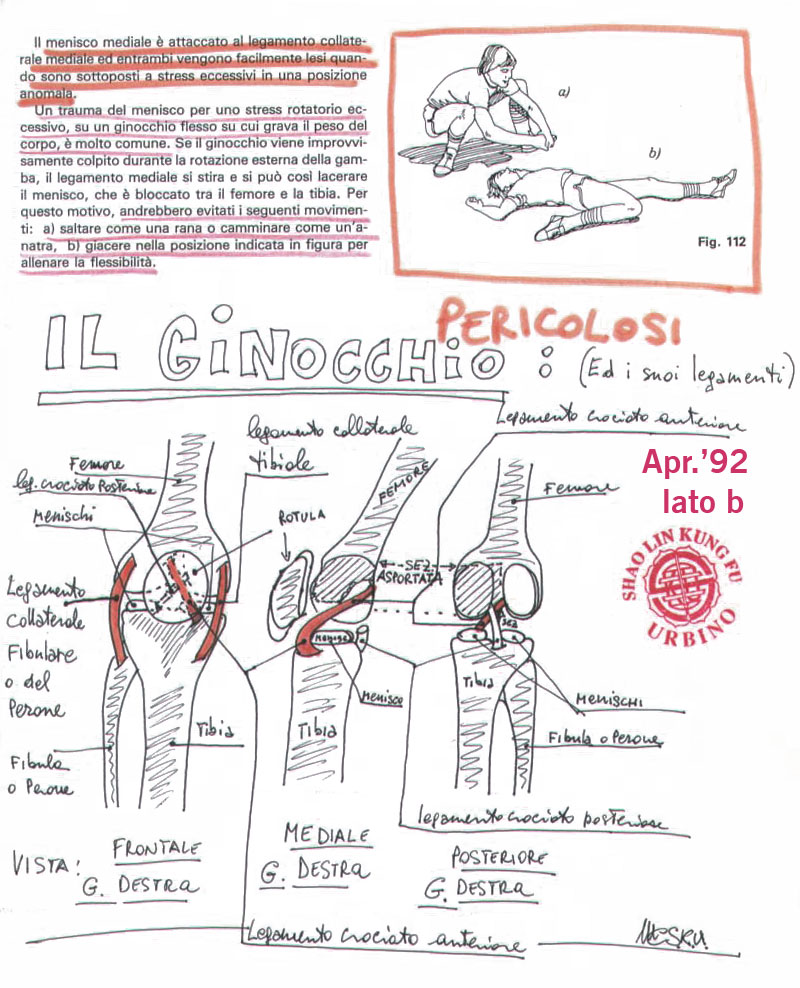 Il menisco mediale è attaccato al legamento collate-
rale mediale ed entrambi vengono facilmente lesi quan-
do sono sottoposti a stress eccessivi in una posizione
anomala.
Un trauma del menisco per uno stress rotatorio ec-
cessivo, su un ginocchio flesso su cui grava il peso del
corpo, è molto comune. Se il ginocchio viene improvvi-
samente colpito durante la rotazione esterna della gam-
ba, il legamento mediale si stira e si può così lacerare
il menisco, che è bloccato tra il femore e la tibia. Per
questo motivo, andrebbero evitati i seguenti movimen-
ti: a) saltare come una rana o camminare come un'a-
natra, b) giacere nella posizione indicata in figura per
allenare la flessibilità.
a)
b)
Fig. 112
PERICOLOSI
IL GINOCCHIO :
(Ed i suoi legamenti)
Legamento crociato anteriore
legamento collaterale
tibiale
Femore
leg. crociato Posteriore
Menischi
ROTULA
FEMORE
Femore
Apr.'92
lato b
SHAO LIN KUNG FU
URBINO
SEZ
ASPORTATA
SEZ
Legamento
collaterale
Fibulare
o del
Perone
Menisco
Menisco
Tibia
Menischi
Tibia
Tibia
Fibula o Perone
Fibula
o Perone
legamento crociato posteriore
VISTA:
FRONTALE
G. DESTRA
MEDIALE
G. DESTRA
POSTERIORE
G. DESTRA
Legamento crociato anteriore